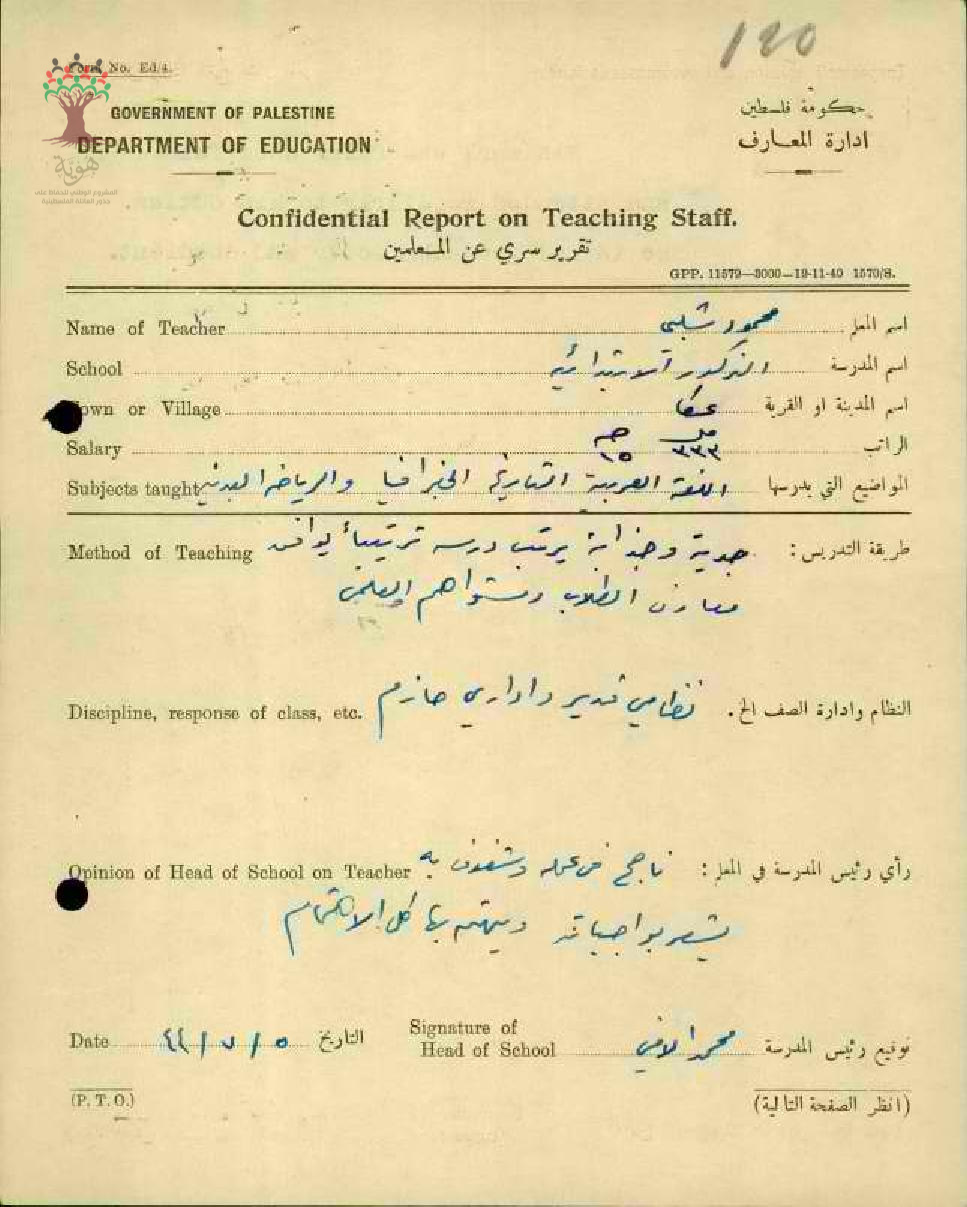 120
Form No. Ed/4.
GOVERNMENT OF PALESTINE
DEPARTMENT OF EDUCATION
حكومة فلسطين
ادارة المعارف
هوية
المشروع الوطني للحفاظ على
جذور العائلة الفلسطينية
Confidential Report on Teaching Staff.
تقرير سري عن المعلمين
GPP. 11579—3000—19-11-40 1570/8.
Name of Teacher محمود شلبي اسم المعلم
School الذكور الابتدائية اسم المدرسة
Town or Village عكا اسم المدينة او القرية
Salary مل ٣٣٣ جـ ١٥ الراتب
Subjects taught اللغة العربية التاريخ الجغرافيا والرياضة البدنية المواضيع التي يدرسها
Method of Teaching جدية وجذابة يرتب درسه ترتيباً يوافق طريقة التدريس :
معارف الطلاب ومستواهم العلمي
Discipline, response of class, etc. نظامي قدير واداري حازم النظام وادارة الصف الخ.
Opinion of Head of School on Teacher ناجح في عمله وشغوف به رأي رئيس المدرسة في المعلم :
يشعر بواجباته ويهتم بها كل الاهتمام
Date ٥ / ٧ / ٤٤ التاريخ
Signature of Head of School محمد توقيع رئيس المدرسة
(P. T. O.) (انظر الصفحة التالية)